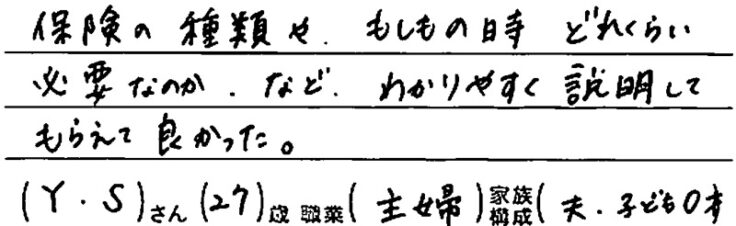 保険の種類や、もしもの時どれくらい
必要なのか、など、わかりやすく説明して
もらえて良かった。
(Y・S)さん(27)歳 職業(主婦)家族構成(夫・子ども0才